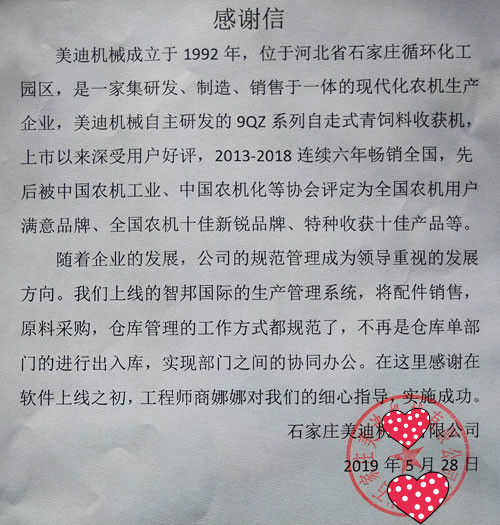 感谢信
美迪机械成立于 1992 年，位于河北省石家庄循环化工
园区，是一家集研发、制造、销售于一体的现代化农机生产
企业，美迪机械自主研发的 9QZ 系列自走式青饲料收获机，
上市以来深受用户好评，2013-2018 连续六年畅销全国，先
后被中国农机工业、中国农机化等协会评定为全国农机用户
满意品牌、全国农机十佳新锐品牌、特种收获十佳产品等。
随着企业的发展，公司的规范管理成为领导重视的发展
方向。我们上线的智邦国际的生产管理系统，将配件销售，
原料采购，仓库管理的工作方式都规范了，不再是仓库单部
门的进行出入库，实现部门之间的协同办公。在这里感谢在
软件上线之初，工程师商娜娜对我们的细心指导，实施成功。
石家庄美迪机 有限公司
2019 年 5 月 28 日